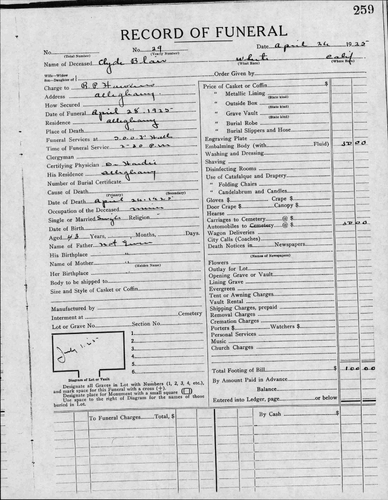 259
RECORD OF FUNERAL
No. No. 29 Date April 26 1925
(Total Number) (Yearly Number)
Name of Deceased Clyde Blair White Calif
(What Race) (Where Born)
Wife—Widow
Son—Daughter of Order Given by
Charge to
Address Alleghany
How Secured
Date of Funeral April 28, 1925
Residence Alleghany
Place of Death
Funeral Services at
Time of Funeral Service 2:00 P.M.
Clergyman
Certifying Physician
His Residence Alleghany
Number of Burial Certificate
Cause of Death
(Primary) (Secondary)
Date of Death April 26 1925
Occupation of the Deceased Miner
Single or Married Single Religion
Date of Birth
Aged 43 Years, Months, Days.
Name of Father Not Given
His Birthplace "
Name of Mother "
(Maiden Name)
Her Birthplace "
Body to be shipped to
Size and Style of Casket or Coffin
Manufactured by
Interment at Cemetery
Lot or Grave No. Section No.
1.
2.
3.
4.
5.
6.
Diagram of Lot or Vault
Designate all Graves in Lot with Numbers (1, 2, 3, 4, etc.), and mark space for this Funeral with a cross (+).
Designate place for Monument with a small square
Use space to the right of Diagram for the names of those buried in Lot.
Price of Casket or Coffin $
" Metallic Lining
(State kind)
" Outside Box
(State kind)
" Grave Vault
(State kind)
" Burial Robe
(State kind)
" Burial Slippers and Hose
Engraving Plate
Embalming Body (with Fluid) 50 00
Washing and Dressing
Shaving
Disinfecting Rooms
Use of Catafalque and Drapery
" Folding Chairs
" Candelabrum and Candles
Gloves $ Crape $
Door Crape $ Canopy $
Hearse
Carriages to Cemetery @ $
Automobiles to Cemetery @ $ 50 00
Wagon Deliveries
City Calls (Coaches)
Death Notices in Newspapers
(Names of Newspapers)
Flowers
Outlay for Lot
Opening Grave or Vault
Lining Grave
Evergreen
Tent or Awning Charges
Vault Rental
Shipping Charges, prepaid
Removal Charges
Cremation Charges
Porters $ Watchers $
Personal Services
Music
Church Charges
Total Footing of Bill $ 100 00
By Amount Paid in Advance
Balance
Entered into Ledger, page or below
To Funeral Charges Total, $ By Cash $